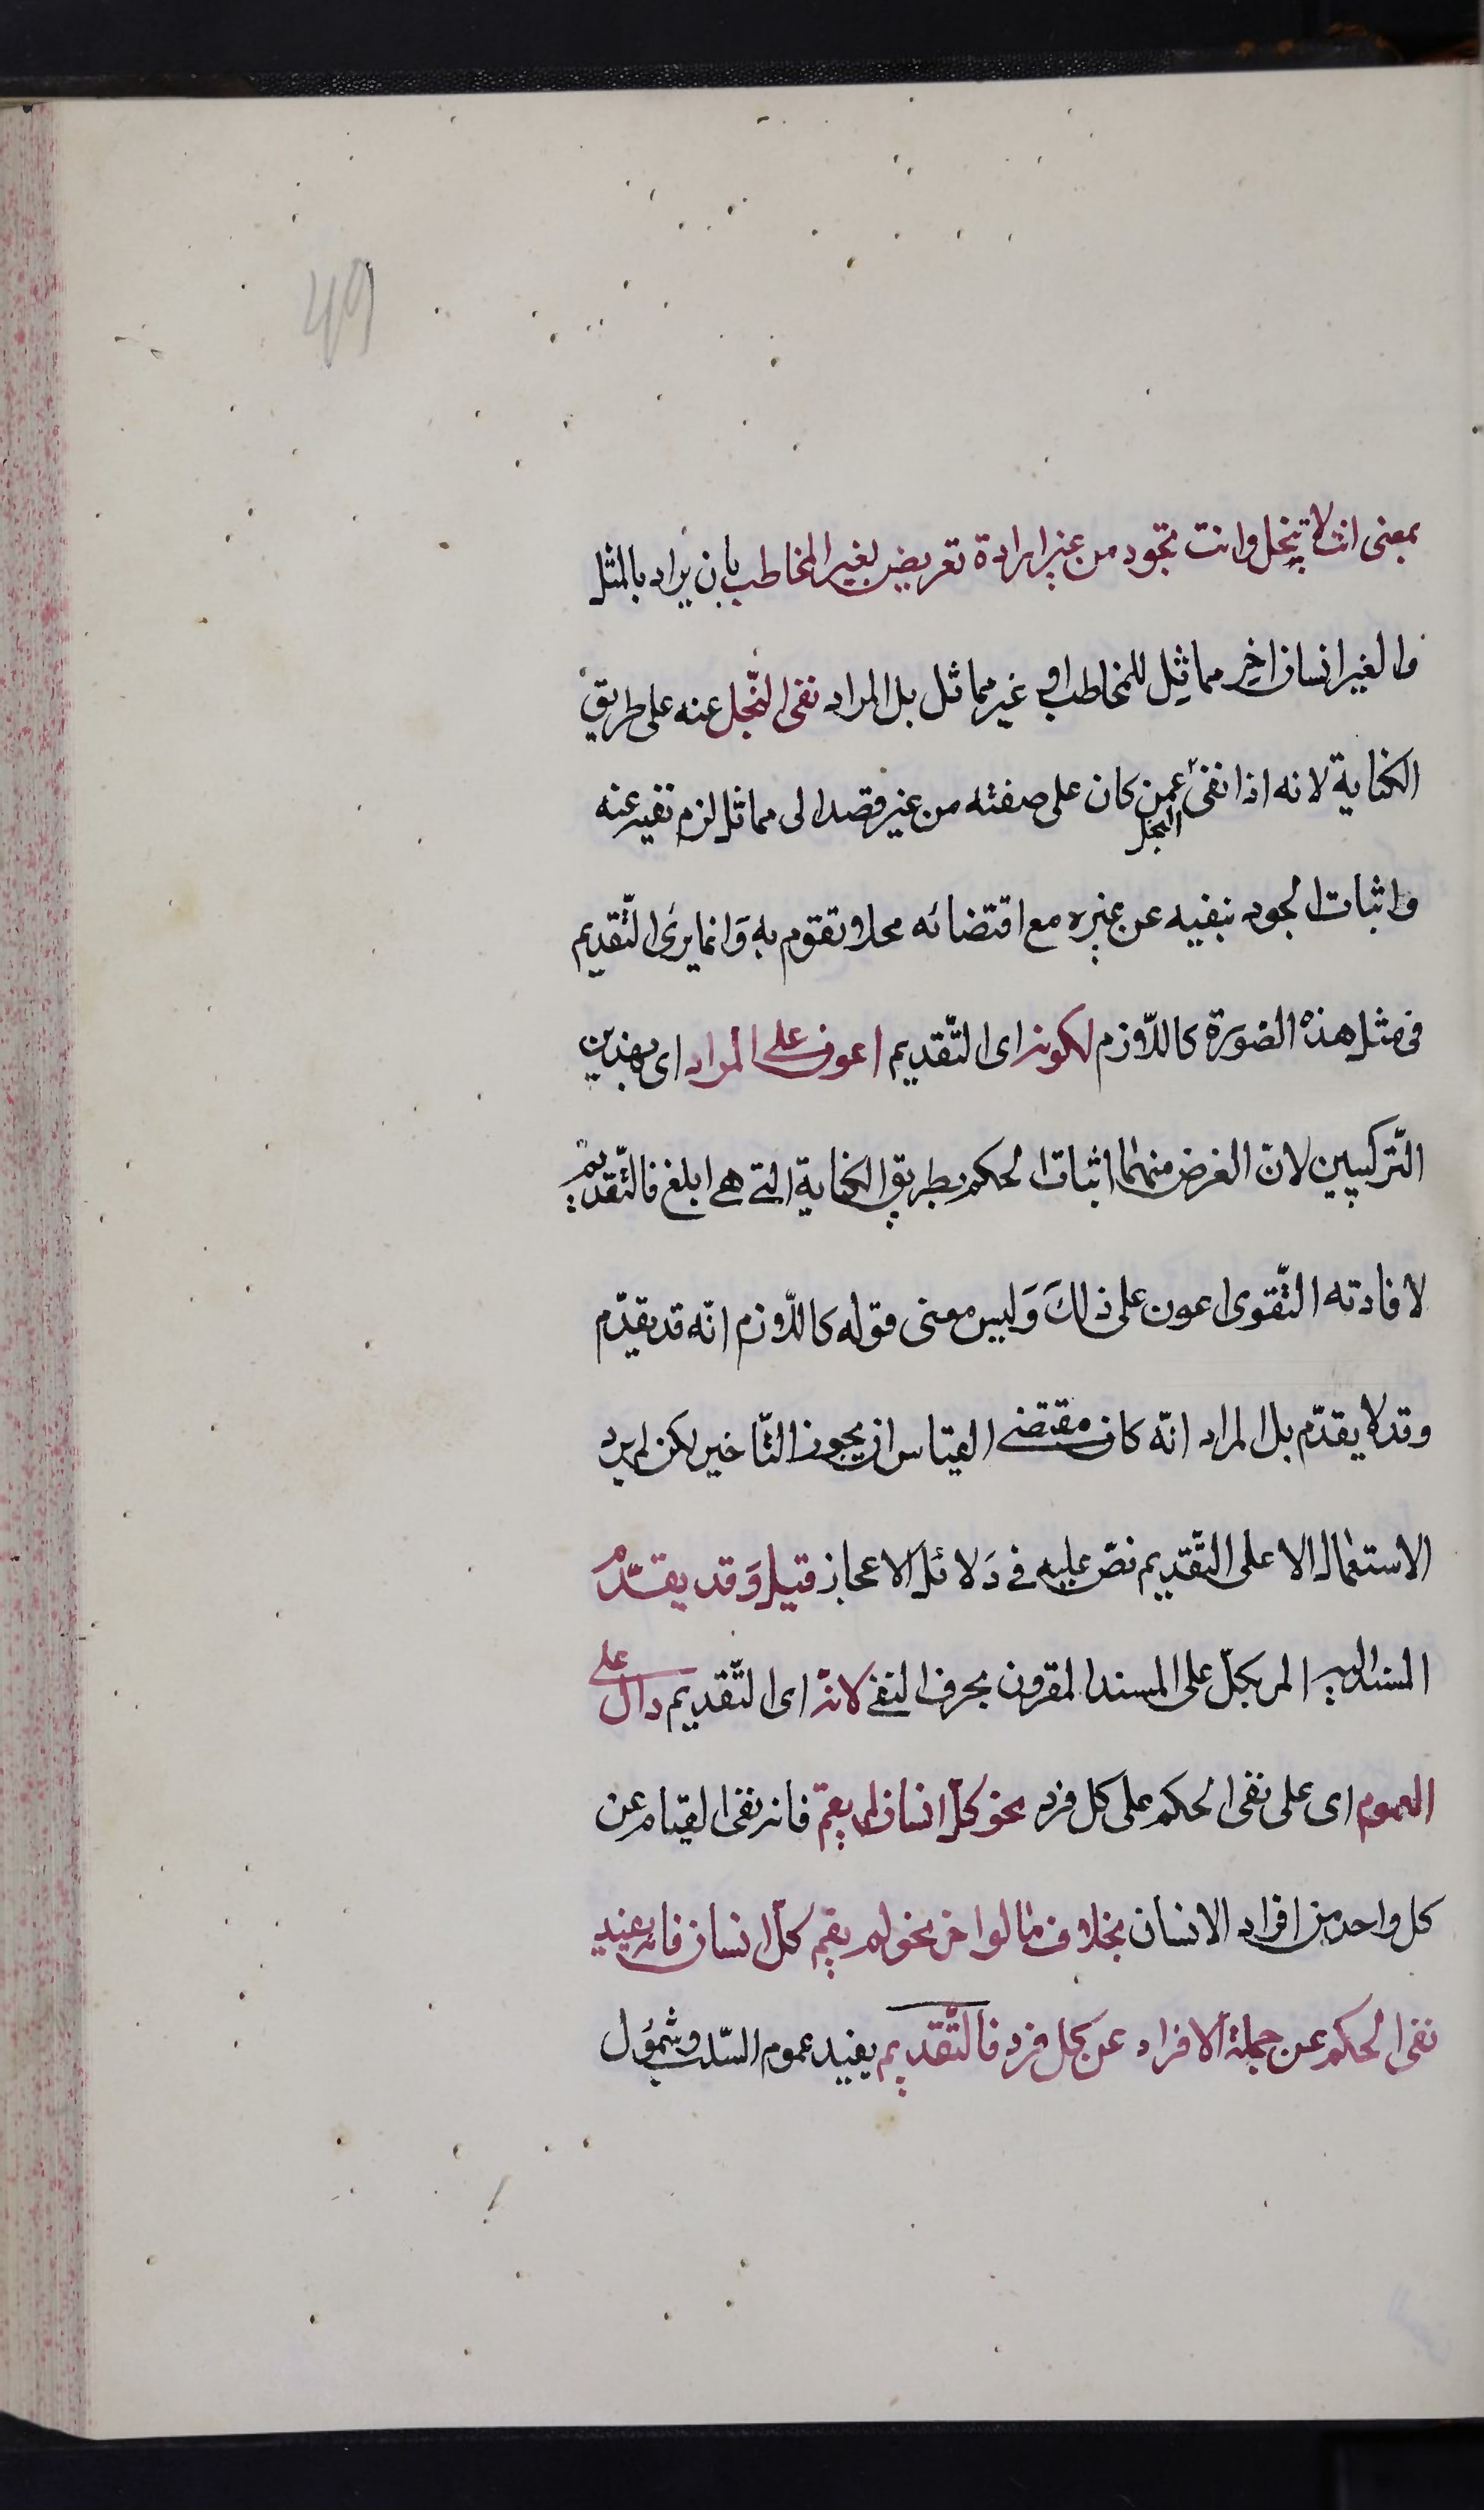 49
بمعنى انت لا تبخل وانت تجود من غير ارادة تعريض لغير المخاطب بان يراد بالمثل
والغير انسان اخر مماثل للمخاطب او غير مماثل بل المراد نفى البخل عنه على طريق
الكناية لانه اذا نفى عمن كان على صفته من غير قصد الى مماثل لزم نفيه عنه
البخل
واثبات الجود بنفيه عن غيره مع اقتضائه محلا و تقوم به وَانما يرى التّقديم
فى مثل هذه الصّورة كاللّازم لكونه اى التّقديم اعون على المراد اى بهذين
التّركيبين لانّ الغرض منهما اثبات الحكم بطريق الكناية التى هى ابلغ فالتّقديم
لافادته التّقوى اعون على ذلكَ وَليس معنى قوله كاللّازم انّه قد يقدّم
وقد لا يقدّم بل المراد انّه كان مقتضى القياس ان يجوز التّاخير لكن لم يرد
الاستعمال الا على التّقديم نصّ عليه فى دَلائل الاعجاز قيل وَقد يقدّم
المسند اليه المر بكلّ على المسند المقرون بحرف النفى لانه اى التّقديم دالّ على
العموم اى على نفى الحكم على كل فرد نحو كلّ انسان لم يقم فانه نفى القيام عن
كل واحد من افراد الانسان بخلاف ما لو اخر نحو لم يقم كلّ انسان فانه يفيد
نفى الحكم عن جملة الافراد عن كل فرد فالتّقديم يفيد عموم السّلب وشمُول